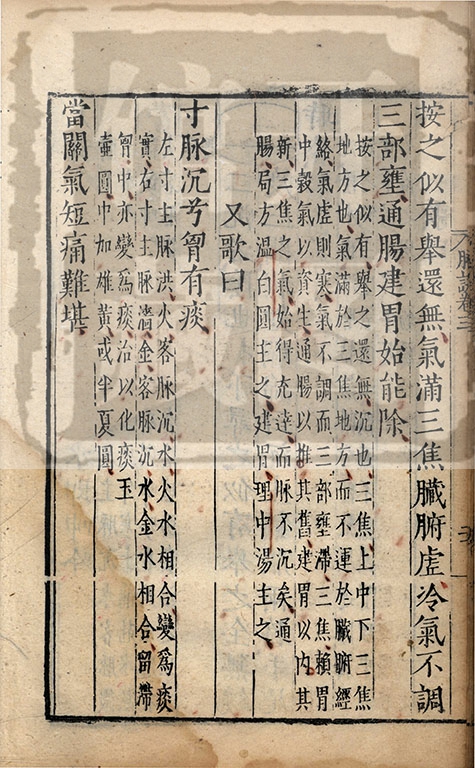 按之似有舉還無氣滿三焦臟腑虛冷氣不調
三部壅通腸建胃始能除
按之似有舉之還無沉也三焦上中下三焦
地方也氣滿於三焦地方而不運於臟腑經
絡氣虛則寒氣不調而三部壅滯三焦賴胃
中穀氣以資生通腸以推其舊建胃以內其
新三焦之氣始得充達而脉不沉矣通
腸局方溫白圓主之建胃理中湯主之
又歌曰
寸脉沉兮胷有痰
左寸主脉洪火客脉沉水火水相合變爲痰
實右寸主脉濇金客脉沉水金水相合留滯
胷中亦變爲痰治以化痰玉
壷圓中加雄黃或半夏圓
當關氣短痛難堪